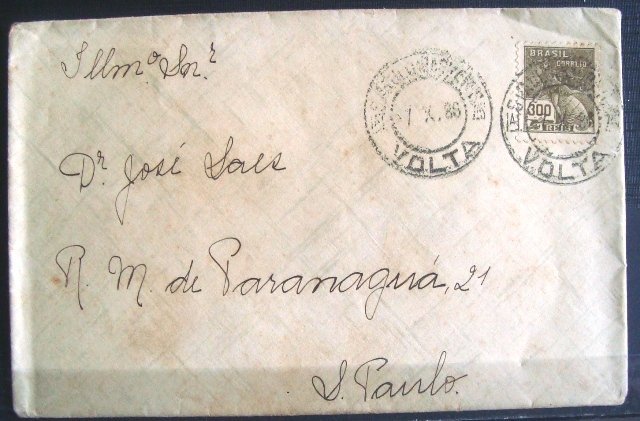 Illmº Snr.
Dr. José Saes
R. M. de Paranaguá, 21
S. Paulo.
1 X. 36
VOLTA
BRASIL
CORREIO
300
REIS
VOLTA